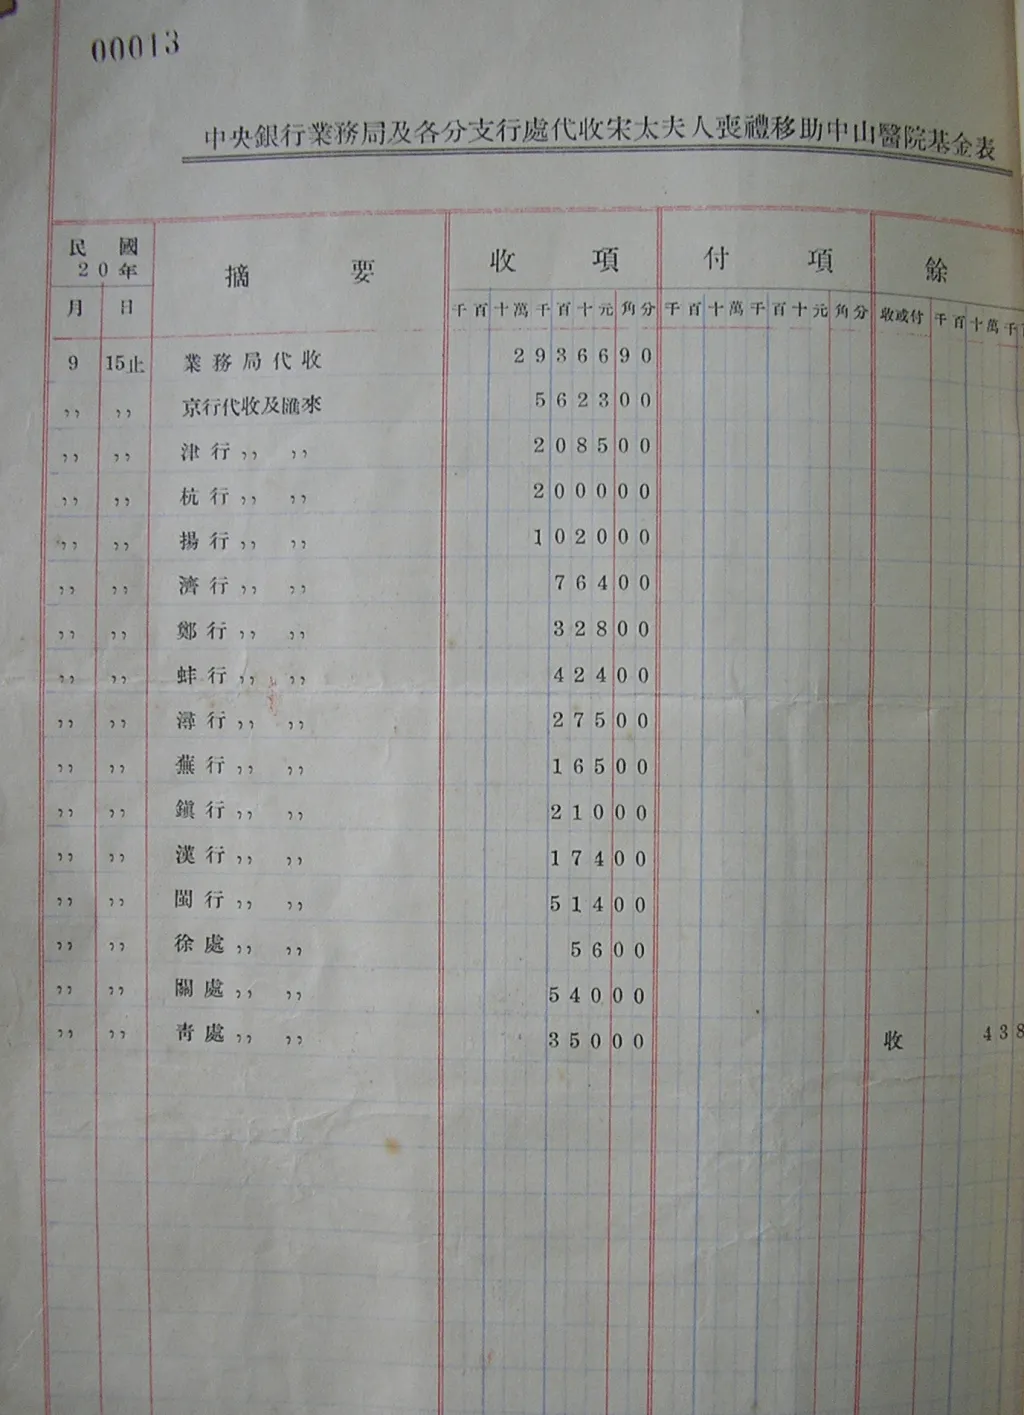 00013
中央銀行業務局及各分支行處代收宋太夫人喪禮移助中山醫院基金表
民國20年 摘要 收項 付項 餘
月 日 千百十萬千百十元角分 千百十萬千百十元角分 收或付 千百十萬千百
9 15止 業務局代收 2936690
,, ,, 京行代收及匯來 562300
,, ,, 津行,, ,, 208500
,, ,, 杭行,, ,, 200000
,, ,, 揚行,, ,, 102000
,, ,, 濟行,, ,, 76400
,, ,, 鄭行,, ,, 32800
,, ,, 蚌行,, ,, 42400
,, ,, 潯行,, ,, 27500
,, ,, 蕪行,, ,, 16500
,, ,, 鎭行,, ,, 21000
,, ,, 漢行,, ,, 17400
,, ,, 閩行,, ,, 51400
,, ,, 徐處,, ,, 5600
,, ,, 關處,, ,, 54000
,, ,, 靑處,, ,, 35000 收 438